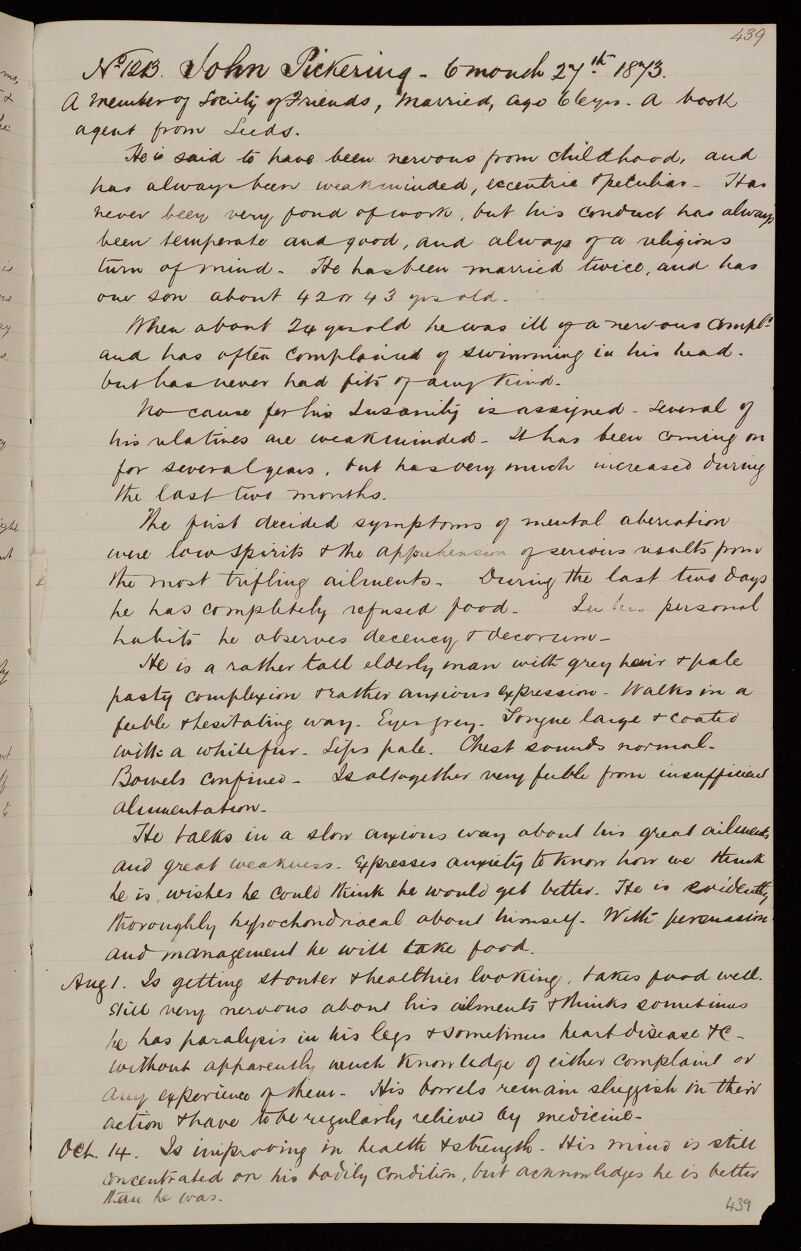 439
No. 1213. John Pickering - 6 month 27th 1873.
A member of Society of Friends, Married, age 66 yrs. A book
agent from Leeds.
He is said to have been nervous from childhood, and
has always been weakminded, eccentric & peculiar - Has
never been very fond of work, but his conduct has always
been temperate and good, and always of a religious
turn of mind - He has been married twice, and has
one son about 42 or 43 yrs old.
When about 24 yrs old he was ill of a nervous Complt
and has often complained of swimming in his head.
but has never had fits of any kind -
No cause for his Insanity is assigned - Several of
his relatives are weakminded - It has been coming on
for several years, but has very much increased during
the last two months.
The first decided symptoms of mental aberration
were low spirits & the apprehension of serious results from
the most trifling ailments - During the last two days
he has completely refused food - In his personal
habits he observes decency & decorum -
He is a rather tall elderly man with grey hair & pale
pasty complexion & rather anxious expression - Walks in a
feeble & hesitating way - Eyes grey - Tongue large & coated
with a white fur - Lips pale. Chest sounds normal -
Bowels confined - Is altogether very feeble from insufficient
alimentation -
He talks in a slow anxious way about his great ailments
and great weakness - Expresses anxiety to know how we think
he is, wishes he could think he would get better. He is evidently
thoroughly hypochondriacal about himself - With persuasion
and management he will take food.
Aug 1. Is getting stouter & healthier looking, takes food well.
Still very nervous about his ailments & thinks sometimes
he has paralysis in his legs & sometimes heart disease &c -
without apparently much knowledge of either complaint or
any experience of them - His bowels remain sluggish in their
action & have to be regularly relieved by medicine -
Oct. 14. Is improving in health & strength - His mind is still
concentrated on his bodily condition, but acknowledges he is better
than he was.
439